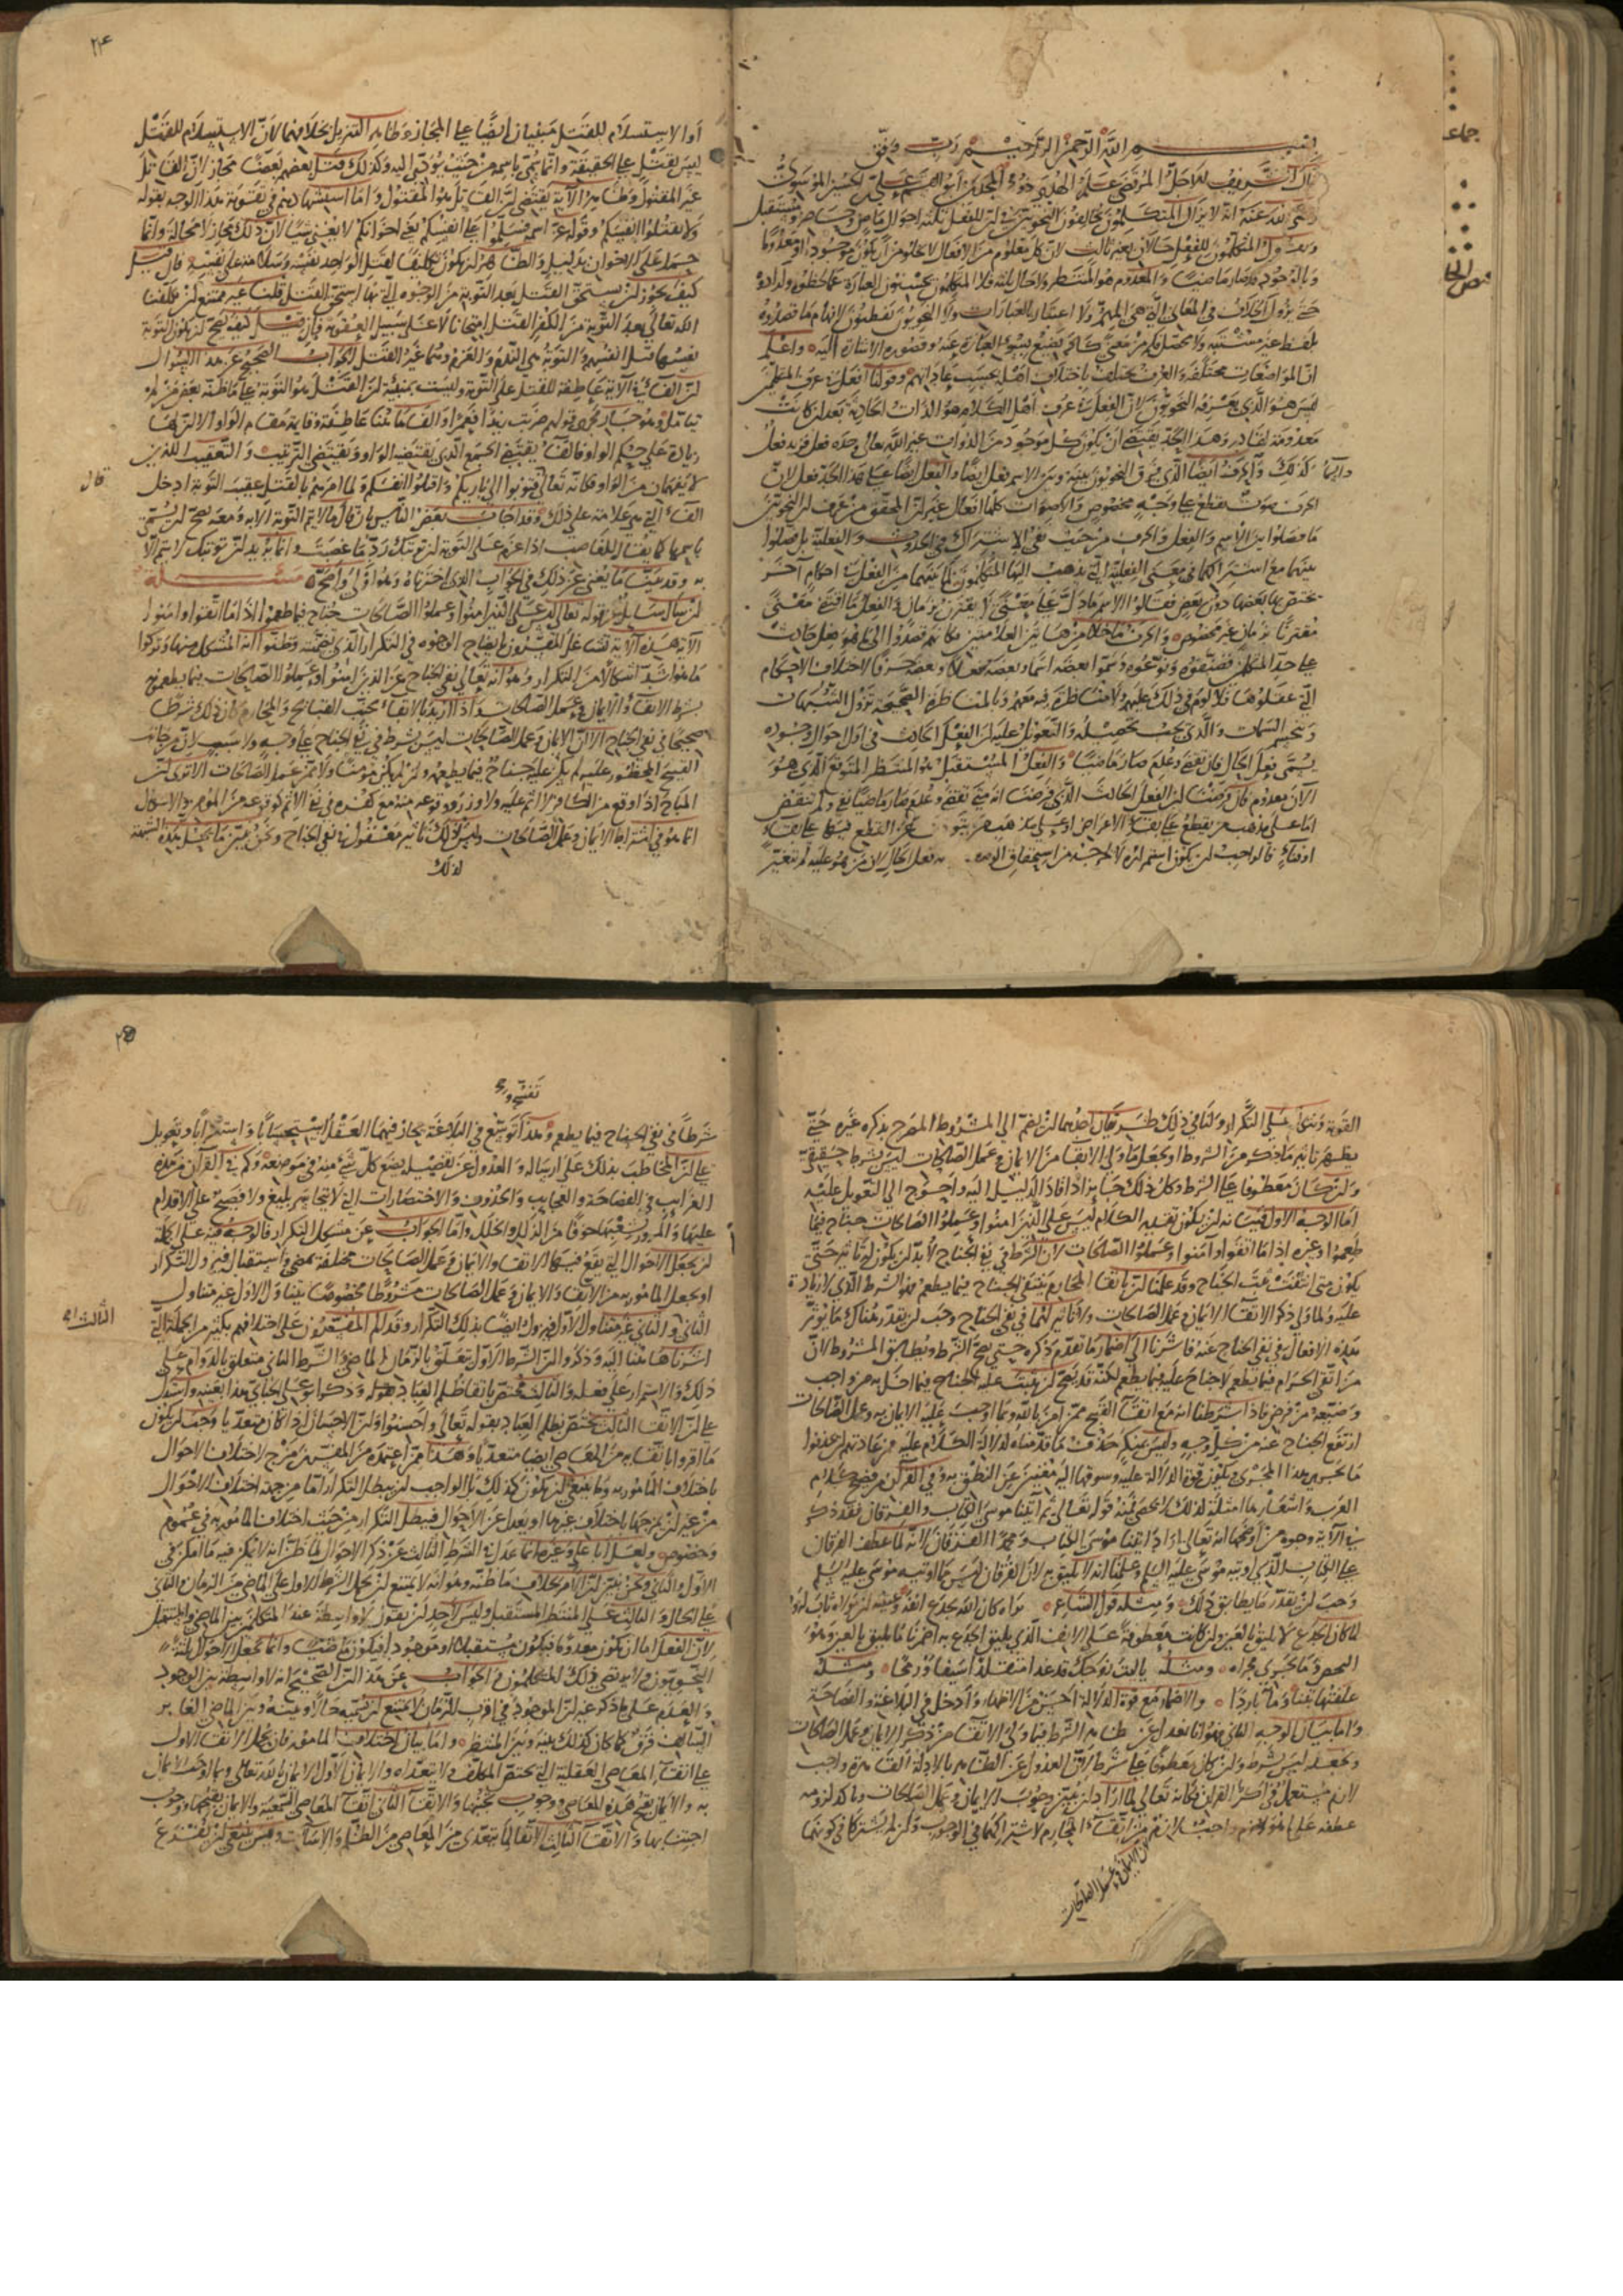 بسم الله الرحمن الرحيم رب وفق
قال الشريف الاجل المرتضى علم الهدى ذو المجدين ابو القسم علي بن الحسين الموسوي
رضي الله عنه انه لا يزال المتكلمون يخالفون النحويين في ان للفعل ثلثة احوال ماض وحاضر ومستقبل
ويقول المتكلمون للفعل حالان بغير ثالث لان كل معلوم من الافعال لا يخلو من ان يكون موجودا او معدوما
وبالوجود قد صار ماضيا والمعدوم هو المنتظر ولا حال ثالثة فلا المتكلمون يحسنون العبارة عما لحظوه وارادوه
حتى يزول الخلاف في المعاني التي هي المهمة ولا اعتبار بالعبارات ولا النحويون يفطنون لافهام ما قصدوه
بلفظ غير مشتبه ولا محتمل وكم من معنى كاد يضيع بسوء العبارة عنه وقصور الاشارة اليه واعلم
ان المواضعات مختلفة والعرف يختلف باختلاف اهله بحسب عاداتهم وقولنا فعل في عرف المتكلمين
ليس هو الذي يعرفه النحويون لان الفعل في عرف اهل الكلام هو الذات الحادثة بعد ان كانت
معدومة لقادر وهذا الحد يقتضي ان يكون كل موجود من الذوات غير الله تعالى وحده فعل فزيد فعل
كذلك والحرف ايضا الذي فرق النحويون بينه وبين الاسم فعل ايضا والفعل ايضا على هذا الحد فعل لان
الحرف صوت يقطع على وجه مخصوص والاصوات كلها افعال غير ان المحقق من عرف ان النحويين
ما فصلوا بين الاسم والفعل والحرف من حيث نفي الاشتراك في الحدوث والفعلية بل فصلوا
بينهما مع اشتراكهما في معنى الفعلية التي يذهب اليها المتكلمون لما بينهما من الفعل في احكام آخر
يختص بها بعضها دون بعض فقالوا الاسم ما دل على معنى لا يقترن بزمان والفعل ما اقتضى معنى
مقترنا بزمان غير مخصوص والحرف ما خلا من هاتين العلامتين فكانهم قصدوا الى ما هو فعل حادث
على حد المتكلمين فصنفوه ونوعوه وسموا بعضه اسما وبعضه فعلا وبعضه حرفا لاختلاف الاحكام
التي عقلوها فلا لوم في ذلك عليهم ولا مناظرة فيه معهم وبالمناظرة الصحيحة تزول الشبهات
وتنحسم التبعات والذي يجب تحصيله والتعويل عليه ان الفعل الحادث في اول احوال وجوده
يسمى فعل الحال فان تقضى وعدم صار ماضيا والفعل المستقبل هو المنتظر المتوقع الذي هو
الآن معدوم فان فرضنا ان الفعل الحادث الذي فرضنا انه متى تقضى وعدم صار ماضيا بقي ولم ينقض
اما على مذهب من يقطع على بقاء الاعراض او على مذهب من يتوقف عن القطع فيها على بقاء
او فناء فالواجب ان يكون استمراره لا يخرجه من استحقاق الوصف بفعل الحال لان من هو عليه لم تتغير
جماعه
دائما
او الاستسلام للقتل مبنيان ايضا على المجاز وظاهر التنزيل بخلافهما لان الاستسلام للقتل
ليس بقتل على الحقيقة وانما يسمى باسمه من حيث يؤدي اليه وكذلك قتل بعضهم بعضا مجاز لان القاتل
غير المقتول وظاهر الآية يقتضي ان القاتل هو المقتول واما استشهادهم في تقوية هذا الوجه بقوله
ولا تقتلوا انفسكم وقوله عز اسمه فسلموا على انفسكم يعني اخوانكم لا يغني شيئا لان ذلك مجاز لا محالة وانما
حمل على الاخوان بدليل والظاهر ان يكون تكليفا لقتل الواحد نفسه وسلاما منه على نفسه فان قيل
كيف يجوز ان يستحق القتل بعد التوبة من الوجوه التي بها استحق القتل قلنا غير ممتنع ان يكلفنا
الله تعالى بعد التوبة من الكفر القتل امتحانا لا على سبيل العقوبة فان قيل كيف يصح ان يكون التوبة
نفسها قتل انفسهم والتوبة هي الندم والعزم وهما غير القتل الجواب الصحيح عن هذا السؤال
ان الفاء في الآية عاطفة للقتل على التوبة وليست بمنبئة ان القتل هو التوبة على ما ظنه بعض من لم
يتامل وهو جار مجرى قولهم ضربت زيدا فعمرا والفاء هاهنا عاطفة وقايمة مقام الواو الا ان لها
زيادة على حكم الواو فالفاء تقتضي الجمع الذي يقتضيه الواو وتقتضي الترتيب والتعقيب اللذين
لا يفهمان من الواو فكانه تعالى قال فتوبوا الى بارئكم واقتلوا انفسكم ولما امرهم بالقتل عقيب التوبة ادخل
الفاء التي هي علامة على ذلك وقد اجاب بعض الناس بان قال ما لا يتم التوبة الا به ومعه يصح ان يسمى
باسمها كما يقال للغاصب اذا عزم على التوبة ان توبتك رد ما غصبت وانما يريد ان توبتك لا يتم الا
به وقد بينا ما يغني عن ذلك في الجواب الذي اخترناه وهو اولى واصح مسئلة
ان سال سايل عن قوله تعالى ليس على الذين آمنوا وعملوا الصالحات جناح فيما طعموا اذا ما اتقوا وآمنوا
الآية هذه الآية تشاغل المفسرون بايضاح الوجوه في التكرار الذي تضمنته وظنوا انه المشكل منها وتركوا
ما هو اشد اشكالا من التكرار وهو انه تعالى نفى الجناح عن الذين آمنوا وعملوا الصالحات فيما يطعمونه
بشرط الاتقاء والايمان وعمل الصالحات واذا اريد بالاتقاء تجنب القبايح والمحارم كان ذلك شرطا
صحيحا في نفي الجناح الا ان الايمان وعمل الصالحات ليس بشرط في نفي الجناح على وجه ولا سبب لان من جانب
القبيح المحظور عليه لم يكن عليه جناح فيما يطعمه وان لم يكن مؤمنا ولا ممن عمل الصالحات الا ترى ان
المباح اذا وقع من الكافر لا اثم عليه ولا وزر وقوعه منه مع كفره في نفي الاثم كوقوعه من المؤمن والاشكال
انما هو في اشتراط الايمان وعمل الصالحات وليس لذلك تاثير معقول في نفي الجناح ونحن نبين ما يحل هذه الشبهة
لذلك
قال
٢٤
القوية ونثني على التكرار ولنا في ذلك طريقان احدهما ان يضم الى المشروط المصرح بذكره غيره حتى
يظهر تاثير ما ذكره من الشروط او يجعل ما ولي الاتقاء من الايمان وعمل الصالحات ليس بشرط حقيقي
وان كان معطوفا على الشرط وكل ذلك جايز اذا قاد الدليل اليه واحوج الى التعويل عليه
اما الوجه الاول فبيانه ان يكون تقدير الكلام ليس على الذين آمنوا وعملوا الصالحات جناح فيما
طعموا وغيره اذا ما اتقوا وآمنوا وعملوا الصالحات لان الشرط في نفي الجناح لا بد ان يكون له تاثير حتى
يكون متى انتفت ثبت الجناح وقد علمنا ان باتقاء المحارم ينتفي الجناح فيما يطعم فهو الشرط الذي لا زيادة
عليه ولما ولي ذكر الاتقاء الايمان وعمل الصالحات ولا تاثير لهما في نفي الجناح وجب ان يقدر هناك ما يؤثر
هذه الافعال في نفي الجناح عنه فاشرنا الى اضمار ما تقدم ذكره حتى يصح الشرط ويطابق المشروط لان
من اتقى الحرام فيما يطعم لا جناح عليه فيما يطعم لكنه قد يصح ان يثبت عليه الجناح فيما اخل به من واجب
وضيعه من فرض فاذا اشترطنا انه مع اتقاء القبيح ممن آمن بالله وبما اوجب عليه الايمان به وعمل الصالحات
ارتفع الجناح عنه من كل وجه وليس بمنكر حذف ما قدمناه لدلالة الكلام عليه فمن عادتهم ان يحذفوا
ما يجري هذا المجرى ويكون قوة الدلالة عليه وسوقها اليه مغنيين عن النطق به وفي القرآن وفصيح كلام
العرب واشعارها امثلة لذلك لا تحصى فمنه قوله تعالى ثم آتينا موسى الكتاب والفرقان فقد ذكر
في الآية وجوه من اوضحها انه تعالى اراد آتينا موسى الكتاب ومحمدا الفرقان لانه لما عطف الفرقان
على الكتاب الذي اوتيه موسى عليه السلم وعلمنا انه لا يليق به لان الفرقان ليس مما اوتيه موسى عليه السلم
وجب ان يقدر ما يطابق ذلك ومثله قول الشاعر تراه كان الله يجدع انفه وعينيه ان مولاه ثاب له وفر
لما كان الجدع لا يليق بالعين وان كانت معطوفة على الانف الذي يليق الجدع به اضمرنا ما يليق بالعين وهو
البخص وما يجري مجراه ومثله يا ليت زوجك قد غدا متقلدا سيفا ورمحا ومثله
علفتها تبنا وماء باردا والاضمار مع قوة الدلالة احسن من الاظهار وادخل في البلاغة والفصاحة
واما بيان الوجه الثاني فهو انا نعدل عن ظاهر الشرط فيما ولي الاتقاء من ذكر الايمان وعمل الصالحات
ونجعله ليس بشرط وان كان معطوفا على شرط لان العدول عن الظاهر بالادلة القاهرة واجب
لازم مستعمل في اكثر القرآن فكانه تعالى لما اراد ان يبين وجوب الايمان وعمل الصالحات وتاكد لزومه
عطفه على ما هو لازم واجب لازم من اتقاء المحارم لاشتراكهما في الوجوب وان لم يشتركا في كونهما
٢٥
شرطا في نفي الجناح فيما يطعم وهذا توسع في البلاغة يحار فيهما العقل استحسانا واستغرابا وتعويل
على ان المخاطب بذلك على ارساله والعدول عن تفصيله يضع كل شيء منه في موضعه وكم في القرآن من هذه
الغرايب في الفصاحة والعجايب والحذوف والاختصارات التي لا يتجاسر بليغ ولا فصيح على الاقدام
عليها والمرور بشعبها خوفا من الزلل والخلل واما الجواب عن مشكل التكرار فالوجه فيه على الجملة
ان يجعل الاحوال التي يقع فيها الاتقاء والايمان وعمل الصالحات مختلفة بمضي واستقبال فيزول التكرار
او يجعل المامور به من الاتقاء والايمان وعمل الصالحات مشروطا مخصوصا يتناول الاول غير متناول
الثاني والثاني غير متناول الاول فيزول ايضا بذلك التكرار وقد الم المفسرون على اختلافهم بكثير من الجملة التي
اشرنا هاهنا اليه وذكروا ان الشرط الاول يتعلق بالزمان الماضي والشرط الثاني متعلق بالدوام على
ذلك والاستمرار على فعله والثالث مختص باتقاء ظلم العباد وذكر ابو علي الجبائي هذا بعينه واستدل
على ان الاتقاء الثالث يختص بظلم العباد بقوله تعالى واحسنوا وان الاحسان اذا كان متعديا وجب ان يكون
ما امروا باتقائه من المعاصي ايضا متعديا وهذا ممن اعتمده من المفسرين مزج لاختلاف الاحوال
باختلاف المامور به وما ينبغي ان يكون كذلك بل الواجب ان يبطل التكرار اما من جهة اختلاف الاحوال
من غير ان يمزجها باختلاف غيرها او يعدل عن الاحوال فيبطل التكرار من حيث اختلاف المامور به في عموم
وخصوص ولعل ابا علي وغيره انما عدل في الشرط الثالث عن ذكر الاحوال لما ظن انه لا يمكن فيه ما امكن في
الاول والثاني ونحن نبين ان الامر بخلاف ما ظنه وهو انه لا يمتنع ان يحمل الشرط الاول على الماضي من الزمان والثاني
على الحال والثالث على المنتظر المستقبل وليس لاحد ان يقول لا واسطة عند المتكلمين بين الماضي والمستقبل
لان الفعل اما ان يكون معدوما فيكون مستقبلا او موجودا فيكون ماضيا وانما يجعل الاحوال ثلثة
النحويون ولا يرتضي ذلك المتكلمون والجواب عن هذا ان الصحيح انه لا واسطة بين الوجود
والعدم على ما ذكر غير ان الموجود في اقرب الازمان لا يمتنع ان نسميه حالا وبينه وبين الماضي الغابر
السالف فرق كما كان كذلك بينه وبين المنتظر واما بيان اختلاف المامور فان يحمل الاتقاء الاول
على اتقاء المعاصي العقلية التي يختص المكلف ولا يتعداه والايمان الاول الايمان بالله تعالى وبما اوجب الايمان
به والايمان بقبح هذه المعاصي ووجوب تجنبها والاتقاء الثاني اتقاء المعاصي السمعية والايمان بقبحها ووجوب
اجتنابها والاتقاء الثالث الاتقاء لما يتعدى من المعاصي من الظلم والاساءة وليس ينبغي ان يفزع